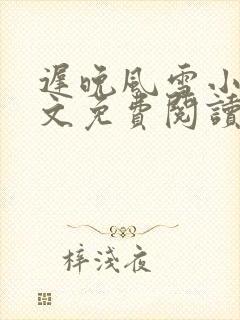 遲晚風雪小
文免費閱讀
梓淺夜